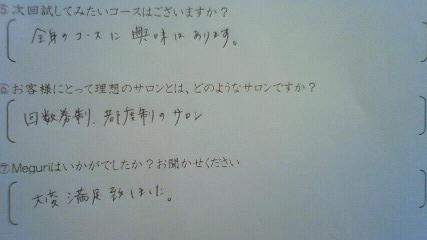 ⑤次回試してみたいコースはございますか？
全身のコースに興味はあります。
⑥お客様にとって理想のサロンとは、どのようなサロンですか？
回数券制、都度制のサロン
⑦Meguriはいかがでしたか？お聞かせください
大変満足致しました。